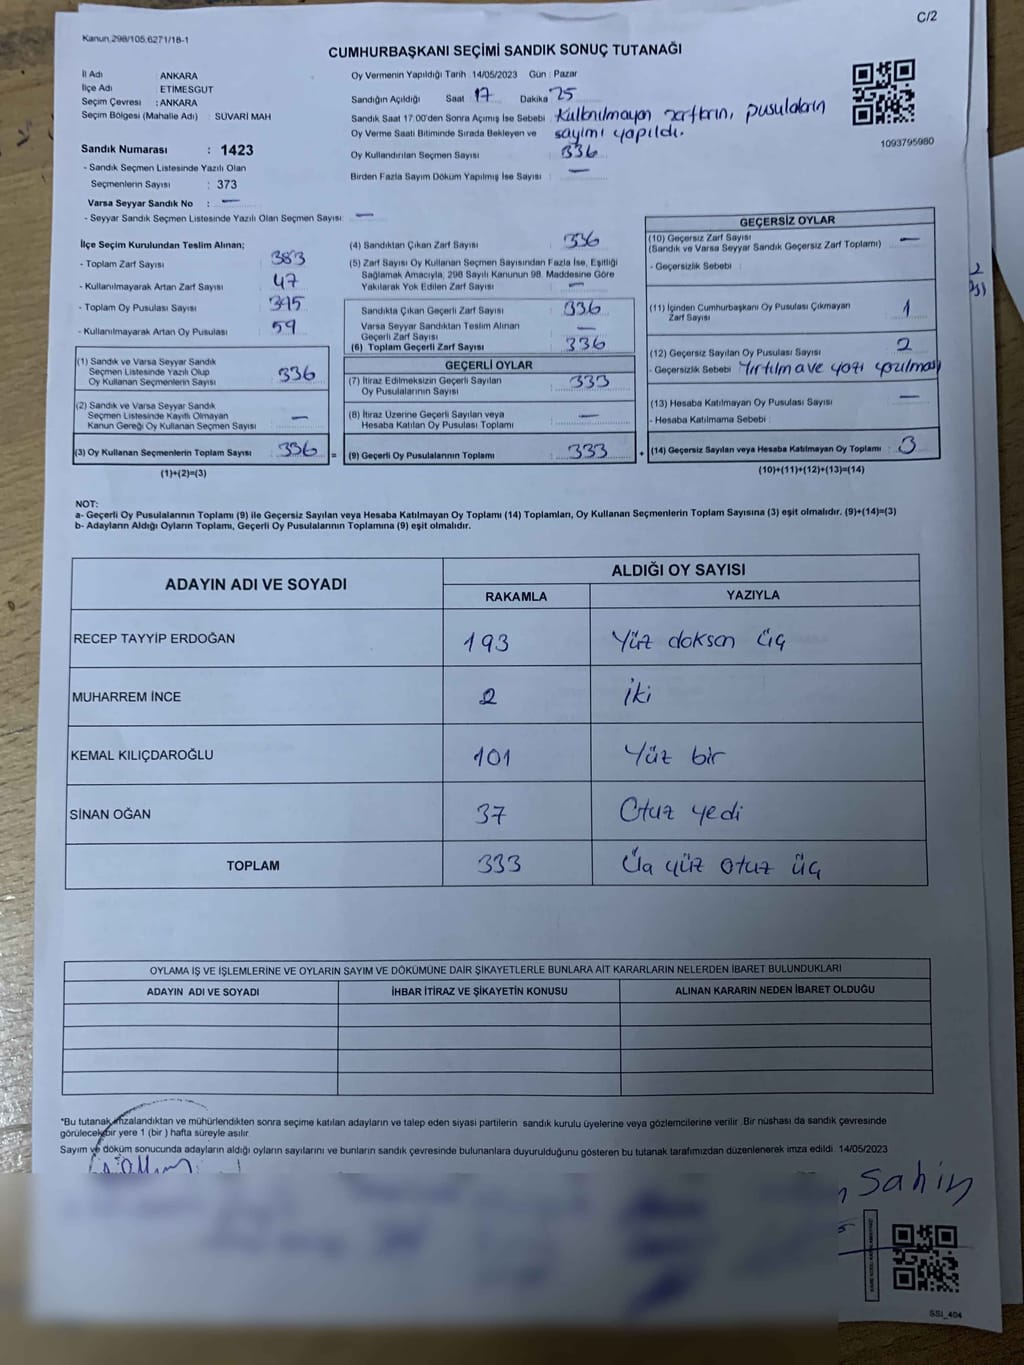 C/2
Kanun.298/105,6271/18-1
CUMHURBAŞKANI SEÇİMİ SANDIK SONUÇ TUTANAĞI
İl Adı : ANKARA
İlçe Adı : ETİMESGUT
Seçim Çevresi : ANKARA
Seçim Bölgesi (Mahalle Adı) : SÜVARİ MAH
Oy Vermenin Yapıldığı Tarih 14/05/2023 Gün : Pazar
Sandığın Açıldığı Saat 17 Dakika 25
Sandık Saat 17:00'den Sonra Açımış İse Sebebi Kullanılmayan zarfların, pusuların
Oy Verme Saati Bitiminde Sırada Bekleyen ve sayımı yapıldı.
Oy Kullandırılan Seçmen Sayısı : 336
Birden Fazla Sayım Döküm Yapılmış İse Sayısı : —
1093795980
Sandık Numarası : 1423
- Sandık Seçmen Listesinde Yazılı Olan
Seçmenlerin Sayısı : 373
Varsa Seyyar Sandık No : —
- Seyyar Sandık Seçmen Listesinde Yazılı Olan Seçmen Sayısı: —
İlçe Seçim Kurulundan Teslim Alınan;
- Toplam Zarf Sayısı : 383
- Kullanılmayarak Artan Zarf Sayısı : 47
- Toplam Oy Pusulası Sayısı : 395
- Kullanılmayarak Artan Oy Pusulası : 59
(1) Sandık ve Varsa Seyyar Sandık
Seçmen Listesinde Yazılı Olup
Oy Kullanan Seçmenlerin Sayısı : 336
(2) Sandık ve Varsa Seyyar Sandık
Seçmen Listesinde Kayıtlı Olmayan
Kanun Gereği Oy Kullanan Seçmen Sayısı : —
(3) Oy Kullanan Seçmenlerin Toplam Sayısı : 336
(1)+(2)=(3)
(4) Sandıktan Çıkan Zarf Sayısı : 336
(5) Zarf Sayısı Oy Kullanan Seçmen Sayısından Fazla İse, Eşitliği
Sağlamak Amacıyla, 298 Sayılı Kanunun 98. Maddesine Göre
Yakılarak Yok Edilen Zarf Sayısı : —
Sandıkta Çıkan Geçerli Zarf Sayısı : 336
Varsa Seyyar Sandıktan Teslim Alınan
Geçerli Zarf Sayısı : —
(6) Toplam Geçerli Zarf Sayısı : 336
GEÇERLİ OYLAR
(7) İtiraz Edilmeksizin Geçerli Sayılan
Oy Pusulasının Sayısı : 333
(8) İtiraz Üzerine Geçerli Sayılan veya
Hesaba Katılan Oy Pusulası Toplamı : —
= (9) Geçerli Oy Pusulalarının Toplamı : 333 +
GEÇERSİZ OYLAR
(10) Geçersiz Zarf Sayısı
(Sandık ve Varsa Seyyar Sandık Geçersiz Zarf Toplamı) : —
- Geçersizlik Sebebi :
(11) İçinden Cumhurbaşkanı Oy Pusulası Çıkmayan
Zarf Sayısı : 1
(12) Geçersiz Sayılan Oy Pusulası Sayısı : 2
- Geçersizlik Sebebi Yırtılma ve yazı yazılması
(13) Hesaba Katılmayan Oy Pusulası Sayısı : —
- Hesaba Katılmama Sebebi :
(14) Geçersiz Sayılan veya Hesaba Katılmayan Oy Toplamı : 3
(10)+(11)+(12)+(13)=(14)
NOT:
a- Geçerli Oy Pusulalarının Toplamı (9) ile Geçersiz Sayılan veya Hesaba Katılmayan Oy Toplamı (14) Toplamları, Oy Kullanan Seçmenlerin Toplam Sayısına (3) eşit olmalıdır. (9)+(14)=(3)
b- Adayların Aldığı Oyların Toplamı, Geçerli Oy Pusulalarının Toplamına (9) eşit olmalıdır.
ADAYIN ADI VE SOYADI ALDIĞI OY SAYISI
RAKAMLA YAZIYLA
RECEP TAYYİP ERDOĞAN 193 Yüz doksan üç
MUHARREM İNCE 2 iki
KEMAL KILIÇDAROĞLU 101 Yüz bir
SİNAN OĞAN 37 Otuz yedi
TOPLAM 333 Üç yüz otuz üç
OYLAMA İŞ VE İŞLEMLERİNE VE OYLARIN SAYIM VE DÖKÜMÜNE DAİR ŞİKAYETLERLE BUNLARA AİT KARARLARIN NELERDEN İBARET BULUNDUKLARI
ADAYIN ADI VE SOYADI İHBAR İTİRAZ VE ŞİKAYETİN KONUSU ALINAN KARARIN NEDEN İBARET OLDUĞU
*Bu tutanak imzalandıktan ve mühürlendikten sonra seçime katılan adayların ve talep eden siyasi partilerin sandık kurulu üyelerine veya gözlemcilerine verilir .Bir nüshası da sandık çevresinde
görülecek bir yere 1 (bir ) hafta süreyle asılır.
Sayım ve döküm sonucunda adayların aldığı oyların sayılarını ve bunların sandık çevresinde bulunanlara duyurulduğunu gösteren bu tutanak tarafımızdan düzenlenerek imza edildi 14/05/2023
Sahin
SSI_404